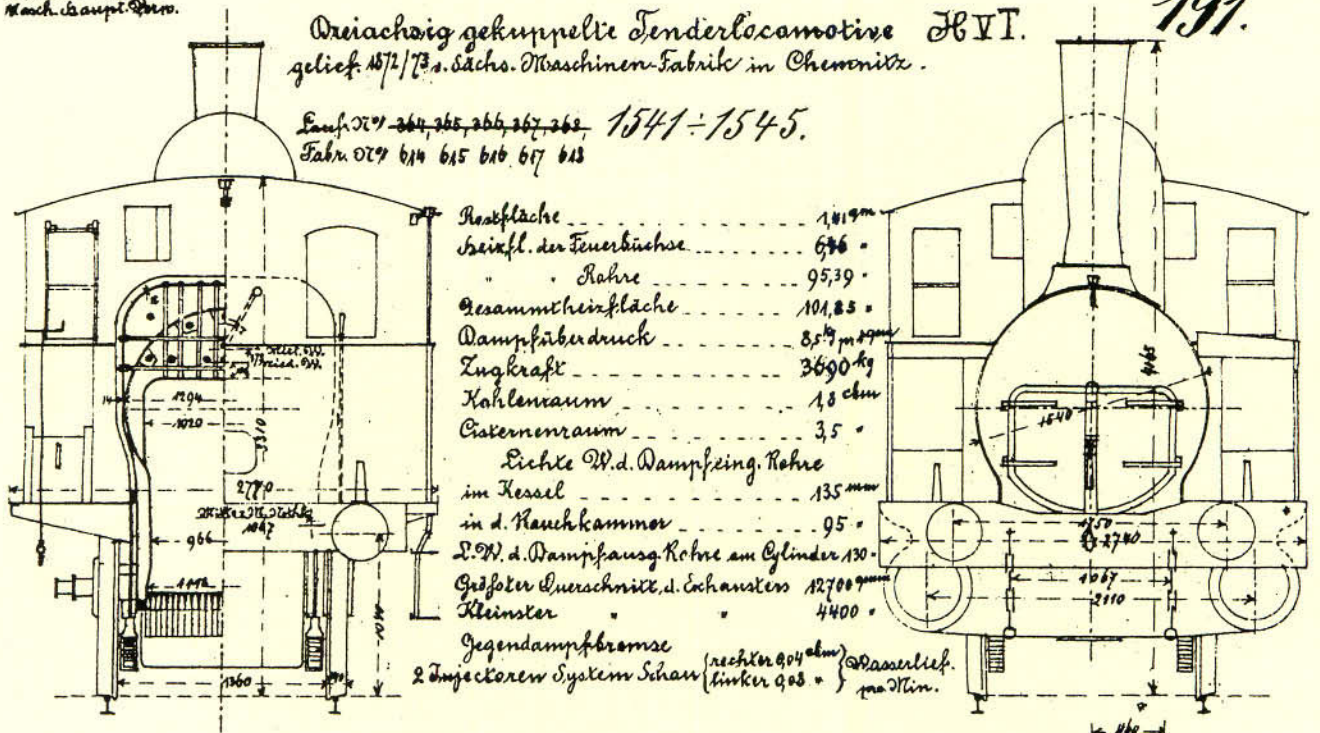 Masch. Haupt. Verw.
191.
Dreiachsig gekuppelte Tenderlocomotive H VT.
gelief. 1872/73 v. Sächs. Maschinen-Fabrik in Chemnitz.
Lauf. No 364, 365, 366, 367, 368, 1541÷1545.
Fabr. No 614 615 616 617 618
Rostfläche 1,41 qm
Heizfl. der Feuerbüchse 6,46 "
" " Rohre 95,39 "
Gesammtheizfläche 101,85 "
Dampfüberdruck 8,5 kg
Zugkraft 3690 kg
Kohlenraum 1,8 cbm
Cisternenraum 3,5 "
Lichte W. d. Dampfeing. Rohre
im Kessel 135 mm
in d. Rauchkammer 95 "
L. W. d. Dampfausg. Rohre am Cylinder 130 "
Größter Querschnitt d. Exhaustors 12700 qmm
Kleinster " " 4400 "
Gegendampfbremse
2 Injectoren System Schau { rechter 0,04 cbm } Wasserlief.
linker 0,08 " pro Min.
14
1294
1020
3310
2770
1047
966
1112
1360
1040
4165
1540
1750
2740
1067
2110
460